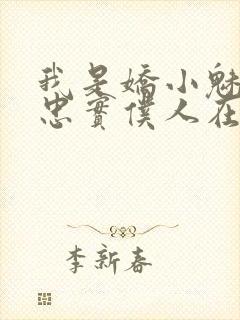 我是嬌小魅
忠實僕人在
李新春